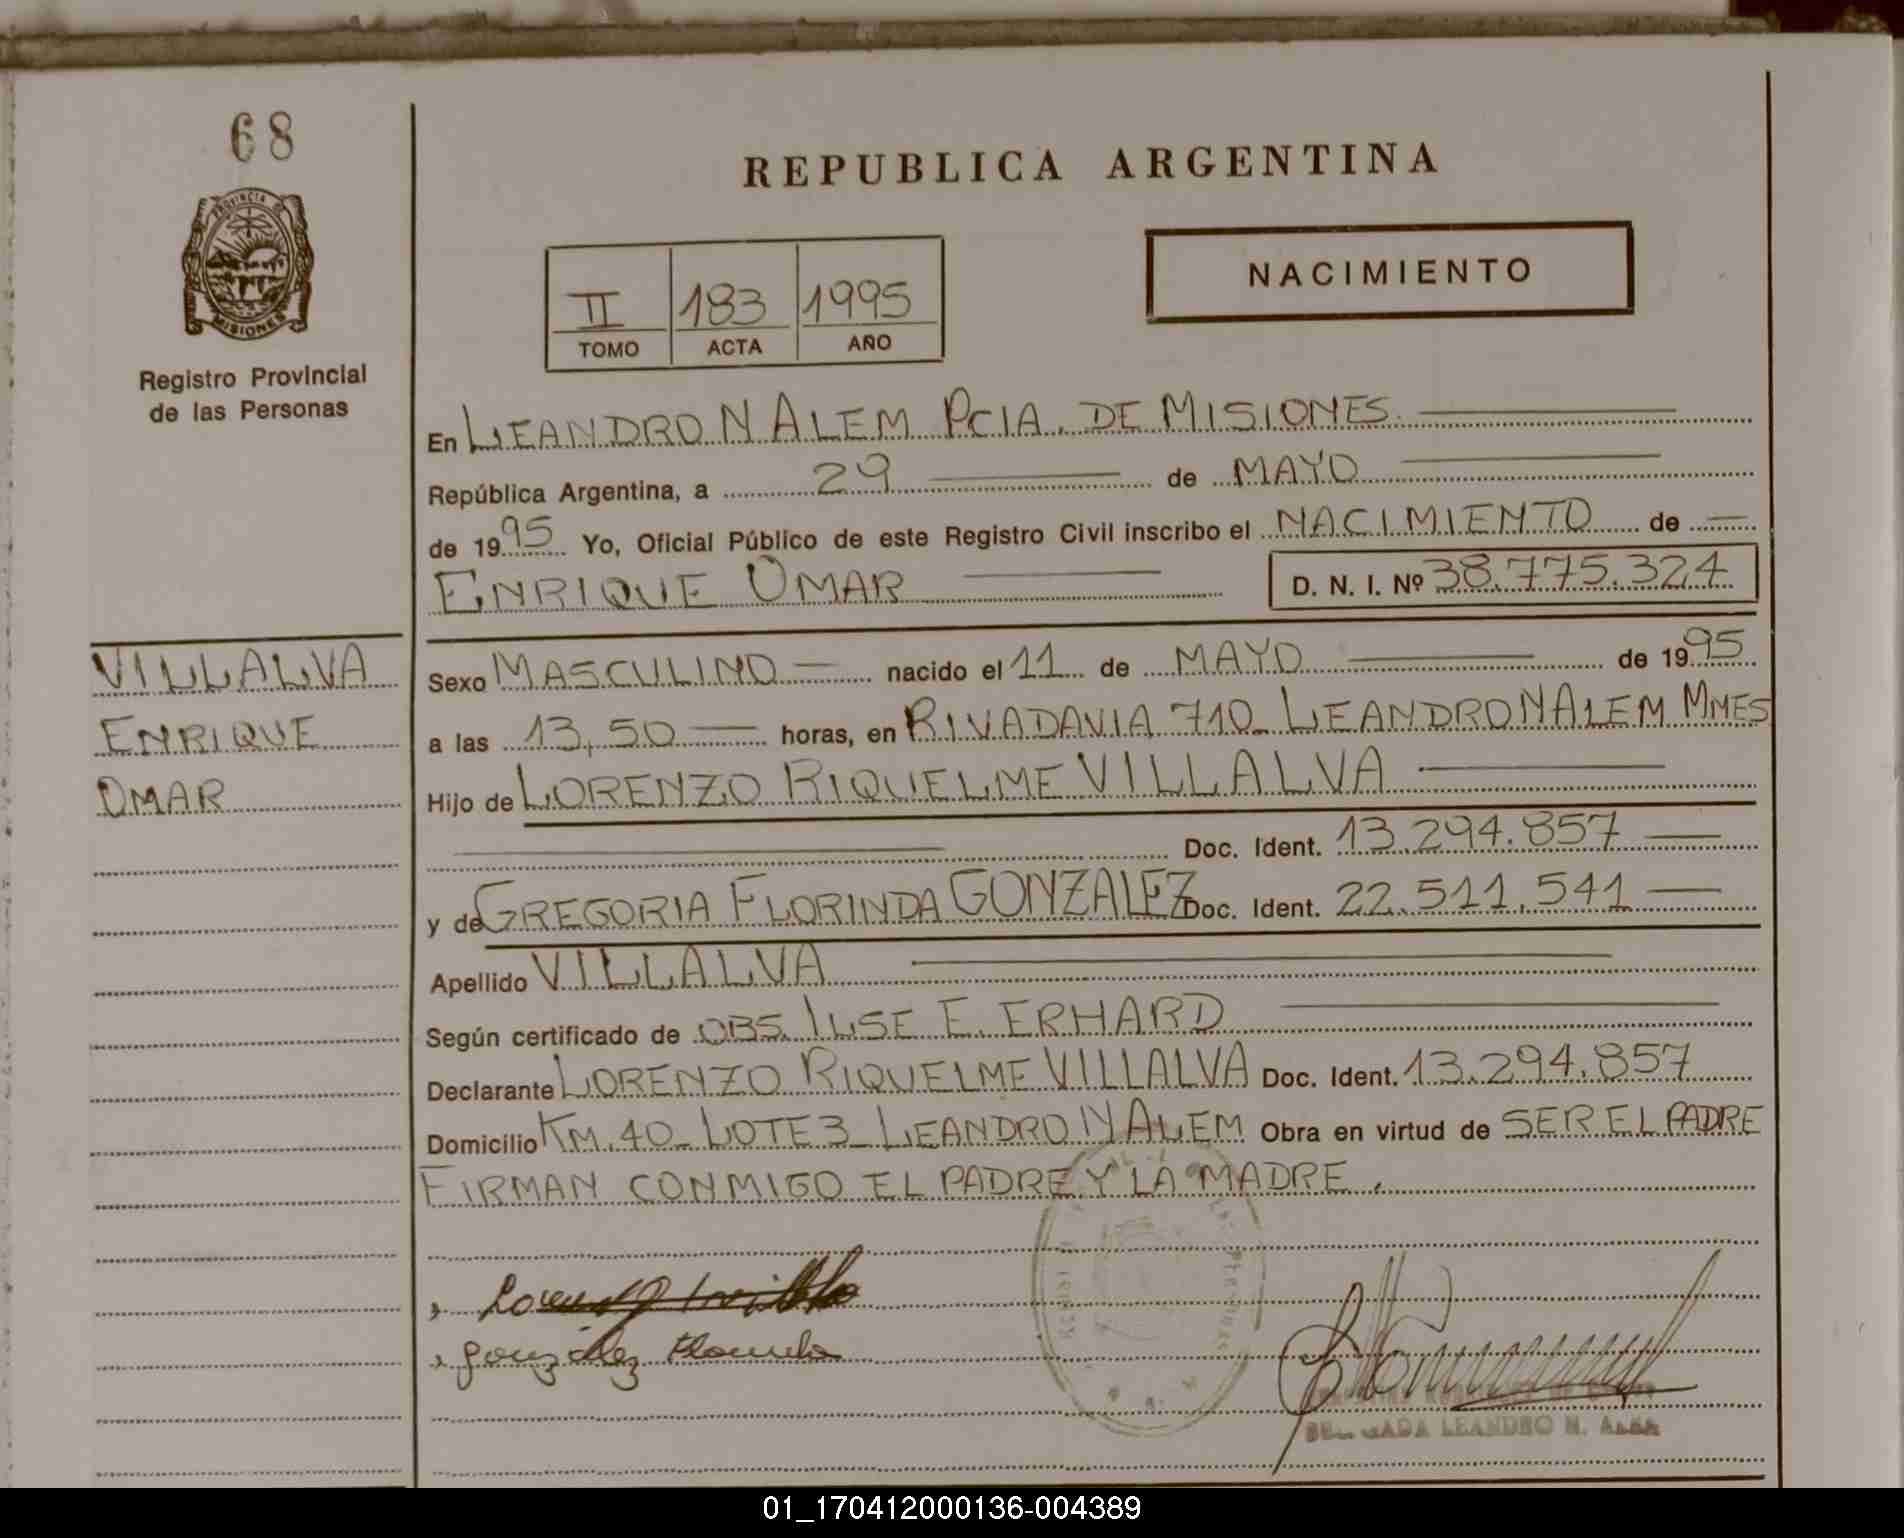 68
PROVINCIA DE
MISIONES
Registro Provincial
de las Personas
VILLALVA
ENRIQUE
OMAR
REPUBLICA ARGENTINA
II 183 1995
TOMO ACTA AÑO
NACIMIENTO
En LEANDRO N ALEM PCIA. DE MISIONES
República Argentina, a 29 de MAYO
de 1995 Yo, Oficial Público de este Registro Civil inscribo el NACIMIENTO de
ENRIQUE OMAR D. N. I. Nº 38.775.324
Sexo MASCULINO nacido el 11 de MAYO de 1995
a las 13,50 horas, en RIVADAVIA 710_ LEANDRO N ALEM MNES
Hijo de LORENZO RIQUELME VILLALVA
Doc. Ident. 13.294.857
y de GREGORIA FLORINDA GONZALEZ Doc. Ident. 22.511.541
Apellido VILLALVA
Según certificado de OBS. ILSE E. ERHARD
Declarante LORENZO RIQUELME VILLALVA Doc. Ident. 13.294.857
Domicilio KM. 40_ LOTE 3_ LEANDRO N ALEM Obra en virtud de SER EL PADRE
FIRMAN CONMIGO EL PADRE Y LA MADRE.
Gonzalez
LEANDRO N. ALEM
01_170412000136-004389